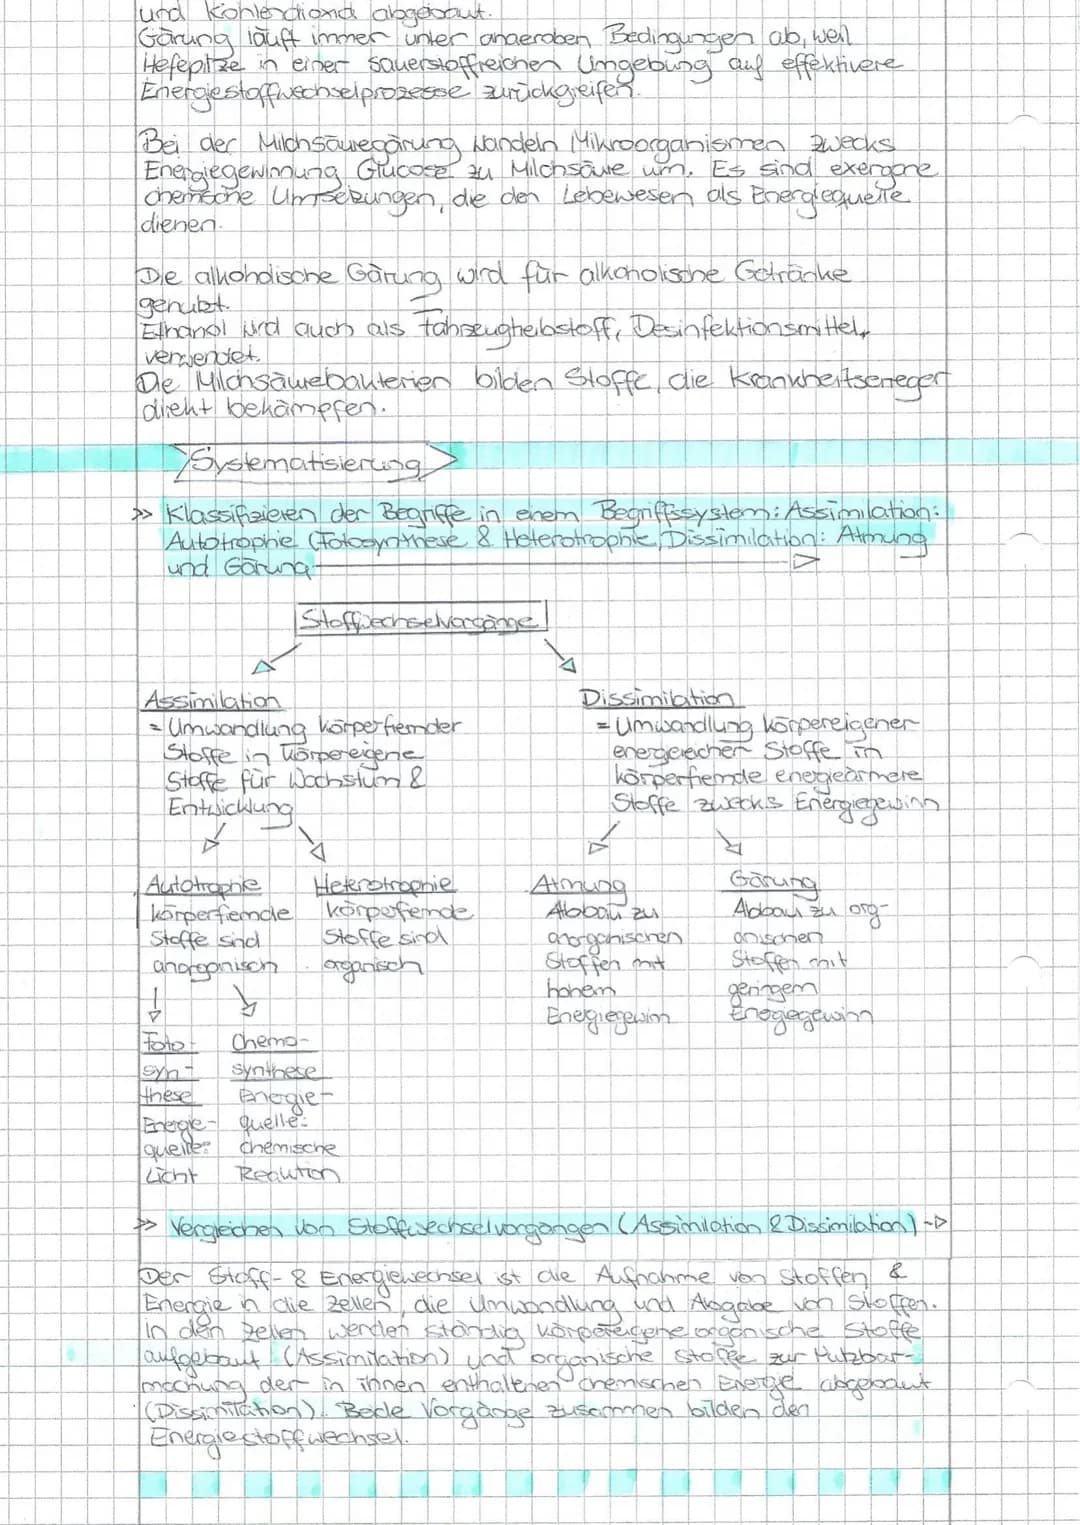 und Kohlendioxid abgebaut.
Gärung läuft immer unter anaeroben Bedingungen ab, weil
Hefepilze in einer sauerstoffreichen Umgebung auf effektivere
Energiestoffwechselprozesse zurückgreifen.
Bei der Milchsäuregärung wandeln Mikroorganismen zwecks
Energiegewinnung Glucose zu Milchsäure um. Es sind exergone
chemische Umsetzungen, die den Lebewesen als Energiequelle
dienen.
Die alkoholische Gärung wird für alkoholische Getränke
genutzt.
Ethanol wird auch als Fahrzeugheibstoff, Desinfektionsmittel,
verwendet.
Die Milchsäurebakterien bilden Stoffe, die Krankheitserreger
direkt bekämpfen.
Systematisierung
>> Klassifizieren der Begriffe in einem Begriffssystem: Assimilation:
Autotrophie (Fotosynthese & Heterotrophie, Dissimilation: Atmung
und Gärung
Stoffwechselvorgänge
Assimilation
= Umwandlung körperfremder
Stoffe in körpereigene
Stoffe für Wachstum &
Entwicklung
Dissimilation
= Umwandlung körpereigener
energiereicher Stoffe in
körperfremde energieärmere
Stoffe zwecks Energiegewinn
Autotrophie
körperfremde
Stoffe sind
anorganisch
Heterotrophie
körperfremde
Stoffe sind
organisch
Atmung
Abbau zu
anorganischen
Stoffen mit
hohem
Energiegewinn
Gärung
Abbau zu org-
anischen
Stoffen mit
geringem
Energiegewinn
Foto-
syn-
these
Energie-
quelle:
Licht
Chemo-
synthese
Energie-
quelle:
chemische
Reaktion
>> Vergleichen von Stoffwechselvorgängen (Assimilation & Dissimilation) ->
Der Stoff- & Energiewechsel ist die Aufnahme von Stoffen &
Energie in die Zellen, die Umwandlung und Abgabe von Stoffen.
In den Zellen werden ständig körpereigene organische Stoffe
aufgebaut (Assimilation) und organische Stoffe zur Nutzbar-
machung der in ihnen enthaltenen chemischen Energie abgebaut
(Dissimilation). Beide Vorgänge zusammen bilden den
Energiestoffwechsel.